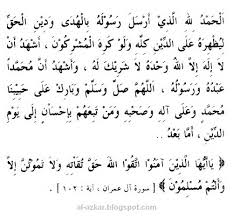 الْحَمْدُ لِلَّهِ الَّذِيْ أَرْسَلَ رَسُوْلَهُ بِالْهُدَى وَدِيْنِ الْحَقِّ
لِيُظْهِرَهُ عَلَى الدِّيْنِ كُلِّهِ وَلَوْ كَرِهَ الْمُشْرِكُوْنَ، أَشْهَدُ أَنْ
لاَ إِلَهَ إِلاَّ اللهُ وَحْدَهُ لاَ شَرِيْكَ لَهُ، وَأَشْهَدُ أَنَّ مُحَمَّداً
عَبْدُهُ وَرَسُوْلُهُ، اَللَّهُمَّ صَلِّ وَسَلِّمْ وَبَارِكْ عَلَى حَبِيْبِنَا
مُحَمَّدٍ وَعَلَى آلِهِ وَصَحْبِهِ وَمَنْ تَبِعَهُمْ بِإِحْسَانٍ إِلَى يَوْمِ
الدِّيْنِ، أَمَّا بَعْدُ ..
﴿ يَاأَيُّهَا الَّذِيْنَ آمَنُوْا اتَّقُوْا اللهَ حَقَّ تُقَاتِهِ وَلاَ تَمُوْتُنَّ إِلاَّ
وَأَنْتُمْ مُسْلِمُوْنَ ﴾ [ سورة آل عمران ، آية : ١٠٢ ] .
al-azkar.blogspot.com